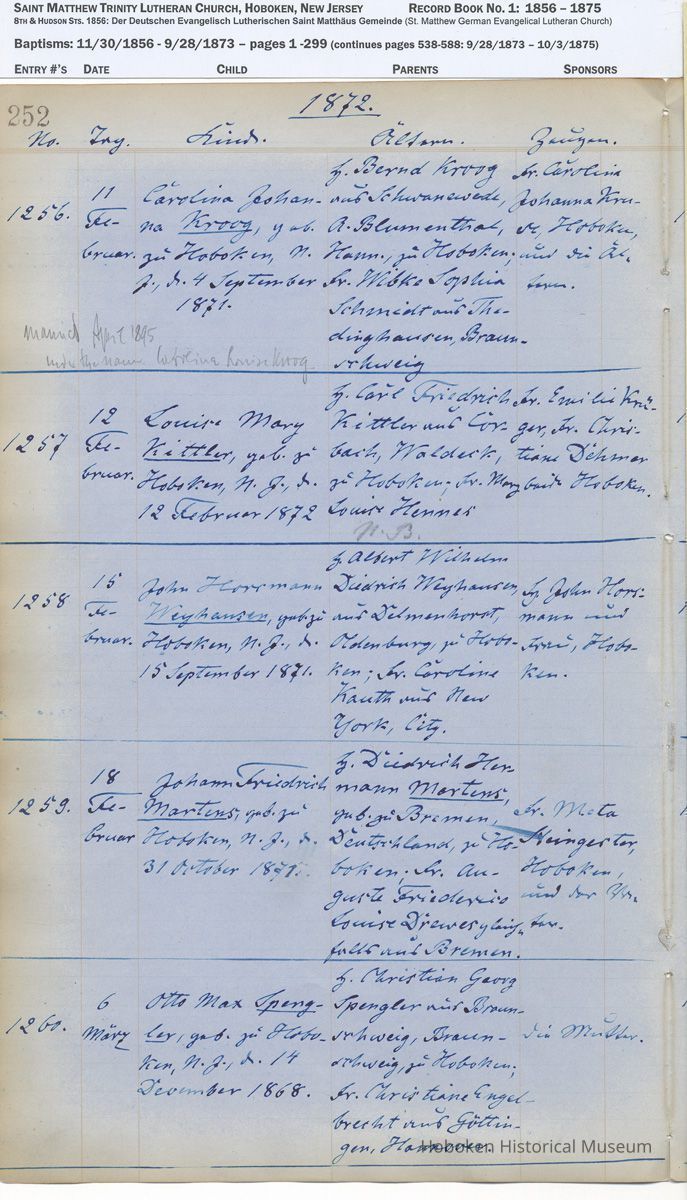 SAINT MATTHEW TRINITY LUTHERAN CHURCH, HOBOKEN, NEW JERSEY RECORD BOOK NO. 1: 1856 – 1875
8TH & HUDSON STS. 1856: Der Deutschen Evangelisch Lutherischen Saint Matthäus Gemeinde (St. Matthew German Evangelical Lutheran Church)
Baptisms: 11/30/1856 - 9/28/1873 – pages 1 -299 (continues pages 538-588: 9/28/1873 – 10/3/1875)
ENTRY #'S DATE CHILD PARENTS SPONSORS
252
1872.
No. Tag. Kind. Ältern. Zeugen.
1256.
11
Fe-
bruar.
Carolina Johan-
na Kroog, geb.
zu Hoboken, N.
J., d. 4 September
1871.
H. Bernd Kroog
aus Schwanewede,
A. Blumenthal,
Hann., zu Hoboken;
Fr. Wibke Sophia
Schmidt aus The-
dinghausen, Braun-
schweig
Fr. Carolina
Johanna Kru-
se, Hoboken,
und die Äl-
tern.
married April 1895
under the name Carolina Louise Kroog
1257
12
Fe-
bruar.
Louise Mary
Kittler, geb. zu
Hoboken, N. J., d.
12 Februar 1872
H. Carl Friedrich
Kittler aus Cor-
bach, Waldeck,
zu Hoboken; Fr. Mary
Louise Hennes
N. B.
Fr. Emilie Krü-
ger, Fr. Chris-
tiane Dehmer
beide Hoboken.
1258
15
Fe-
bruar.
John Horsmann
Weyhausen, geb. zu
Hoboken, N. J., d.
15 September 1871.
H. Albert Wilhelm
Diedrich Weyhausen,
aus Delmenhorst,
Oldenburg, zu Hobo-
ken; Fr. Caroline
Kauth aus New
York, City.
H. John Hors-
mann und
Frau, Hobo-
ken.
1259.
18
Fe-
bruar
Johann Friedrich
Martens, geb. zu
Hoboken, N. J., d.
31 October 1871.
H. Diedrich Her-
mann Martens,
geb. zu Bremen,
Deutschland, zu Ho-
boken; Fr. Au-
guste Friederico
Louise Drewes gleich-
falls aus Bremen.
Fr. Meta
Hoboken,
und der Va-
ter.
1260.
6
März
Otto Max Speng-
ler, geb. zu Hobo-
ken, N. J., d. 14
December 1868.
H. Christian Georg
Spengler aus Braun-
schweig, Braun-
schweig, zu Hoboken;
Fr. Christiane Engel-
brecht aus Göttin-
gen, Hannover.
die Mutter.
Hoboken Historical Museum